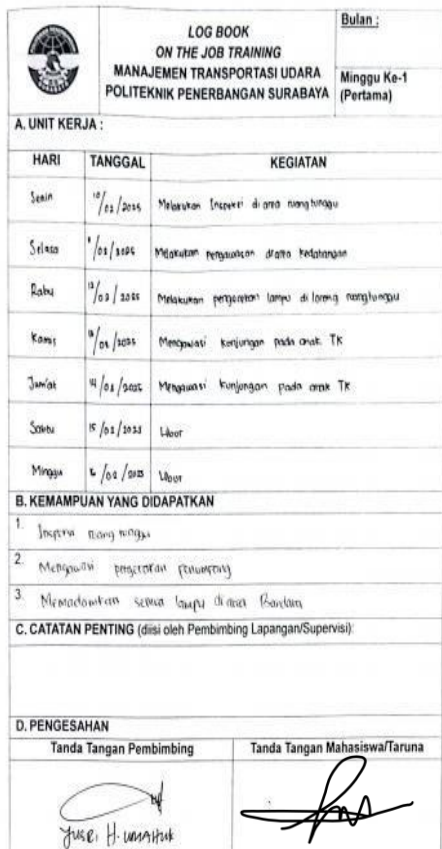 LOG BOOK
ON THE JOB TRAINING
MANAJEMEN TRANSPORTASI UDARA
POLITEKNIK PENERBANGAN SURABAYA
Bulan :
Minggu Ke-1
(Pertama)
A. UNIT KERJA :
HARI TANGGAL KEGIATAN
Senin 10/02/2025 Melakukan Inspeksi di area ruang tunggu
Selasa /02/2025 Melakukan pengawasan diarea kedatangan
Rabu 12/02/2025 Melakukan pengecetan lampu di lorong ruang tunggu
Kamis /02/2025 Mengawasi kunjungan pada anak TK
Jum'at 14/02/2025 Mengawasi kunjungan pada anak TK
Sabtu 15/02/2025 Libur
Minggu /02/2025 Libur
B. KEMAMPUAN YANG DIDAPATKAN
1. ruang tunggu
2. Mengawasi penumpang
3. Memadamkan semua lampu di area Bandara
C. CATATAN PENTING (diisi oleh Pembimbing Lapangan/Supervisi):
D. PENGESAHAN
Tanda Tangan Pembimbing Tanda Tangan Mahasiswa/Taruna